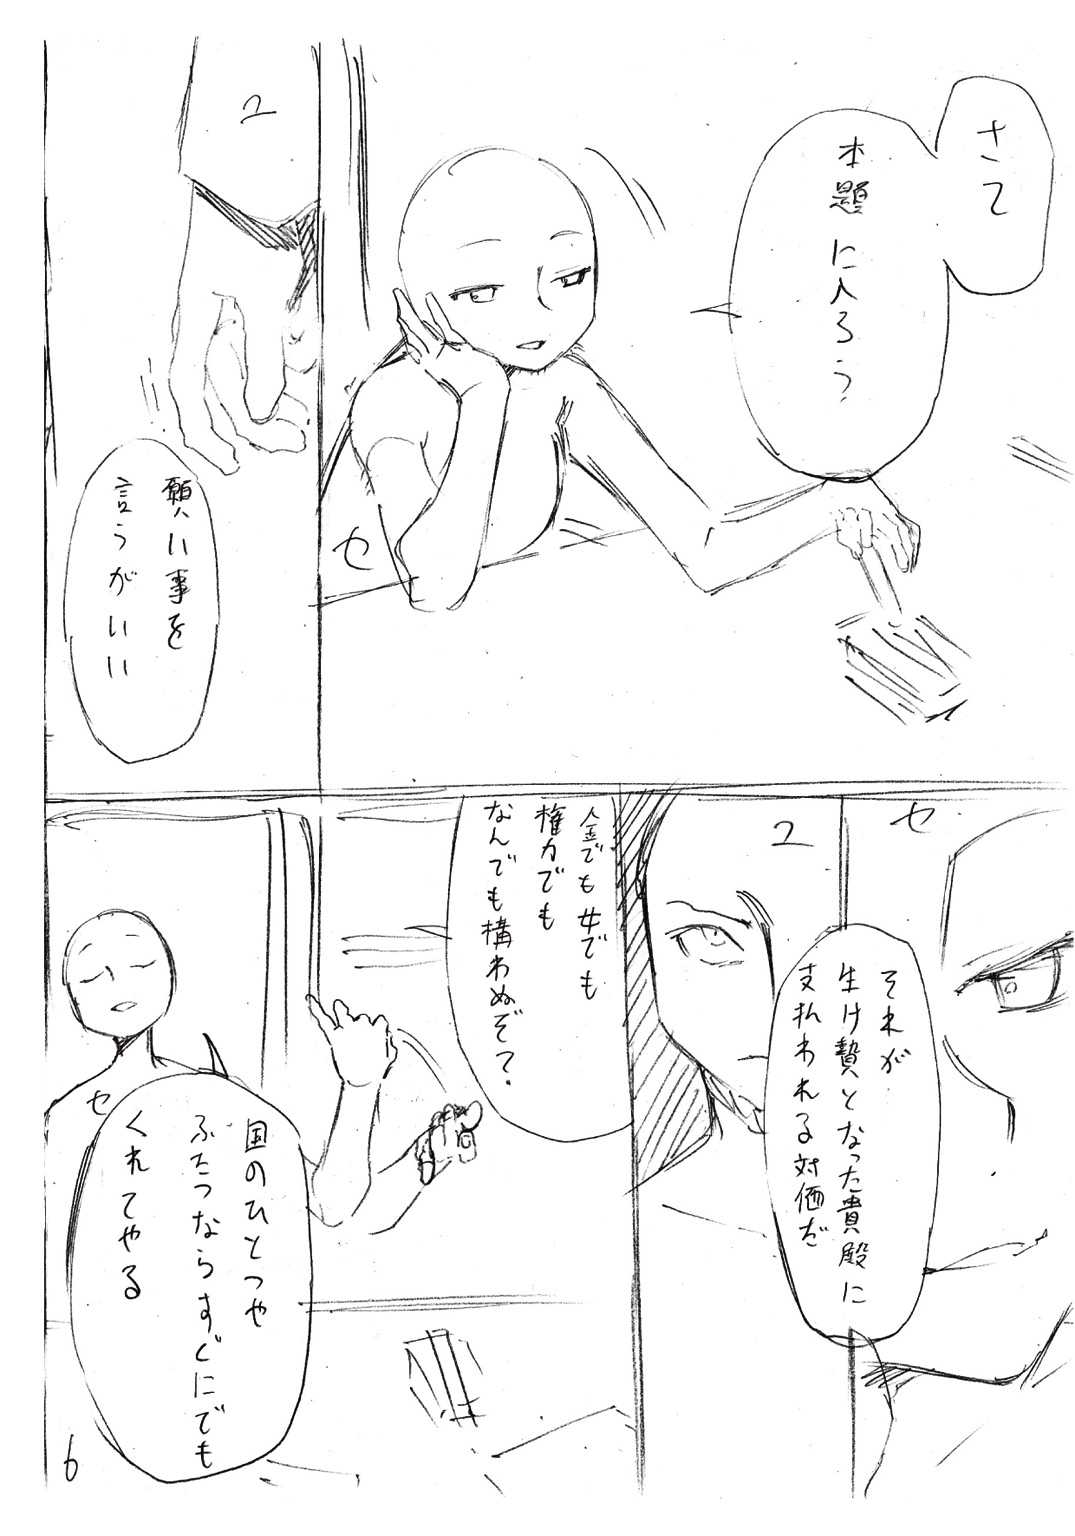 さて
本題に入ろう
セ
ユ
願い事を
言うがいい
セ
それが
生け贄となった貴殿に
支払われる対価だ
ユ
金でも女でも
権力でも
なんでも構わぬぞ？
国のひとつや
ふたつならすぐにでも
くれてやる
セ
6